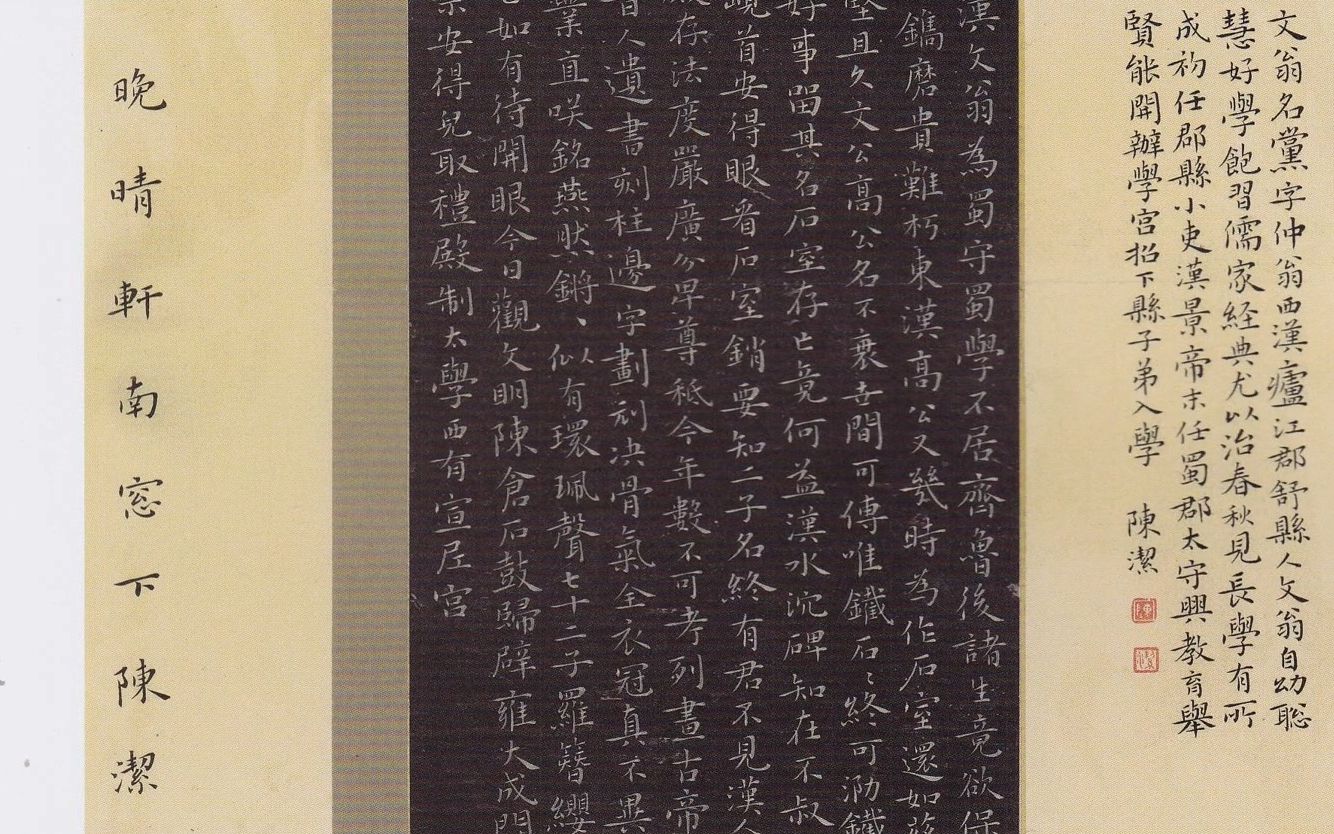 文翁名黨字仲翁西漢廬江郡舒縣人文翁自幼聡
慧好學飽習儒家経典尤以治春秋見長學有所
成初任郡縣小吏漢景帝末任蜀郡太守興教育舉
賢能開辦學宮招下縣子弟入學 陳潔
陳
潔
漢文翁為蜀守蜀學不居齊魯後諸生竟欲保
鐫磨貴難朽東漢高公又幾時為作石室還如茲
堅且久文公高公名不衰世間可傳唯鐵石〻終可泐鐵
好事留其名石室存亡竟何益漢水沉碑知在不叔
峴首安得眼看石室銷要知二子名終有君不見漢人
殿存法度嚴廣分卑尊秪今年數不可考列畫古帝
昔人遺書刻柱邊字畫刓決骨氣全衣冠真不異
業直咲銘燕然鏘〻似有環珮聲七十二子羅簪纓
如有待開眼今日觀文明陳倉石鼓歸辟雍大成門
宗安得兒取禮殿制太學西有宣尼宮
晚晴軒南窓下陳潔